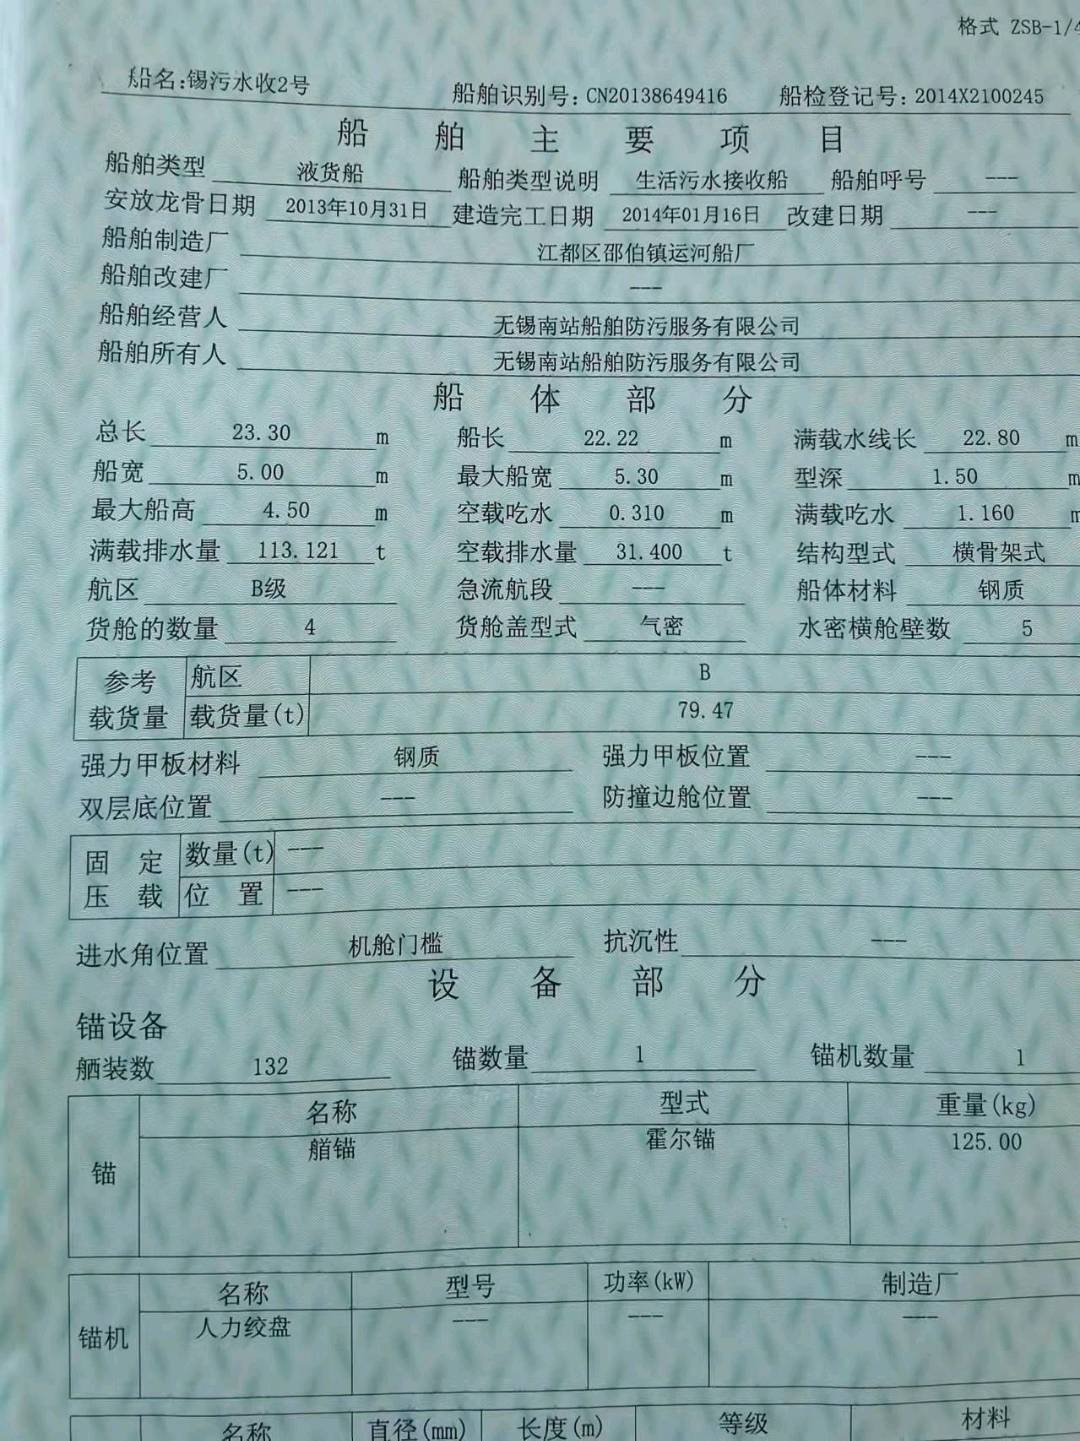 格式 ZSB-1/4
船名:锡污水收2号 船舶识别号:CN20138649416 船检登记号:2014X2100245
船舶主要项目
船舶类型 液货船 船舶类型说明 生活污水接收船 船舶呼号 ---
安放龙骨日期 2013年10月31日 建造完工日期 2014年01月16日 改建日期 ---
船舶制造厂 江都区邵伯镇运河船厂
船舶改建厂 ---
船舶经营人 无锡南站船舶防污服务有限公司
船舶所有人 无锡南站船舶防污服务有限公司
船体部分
总长 23.30 m 船长 22.22 m 满载水线长 22.80 m
船宽 5.00 m 最大船宽 5.30 m 型深 1.50 m
最大船高 4.50 m 空载吃水 0.310 m 满载吃水 1.160 m
满载排水量 113.121 t 空载排水量 31.400 t 结构型式 横骨架式
航区 B级 急流航段 --- 船体材料 钢质
货舱的数量 4 货舱盖型式 气密 水密横舱壁数 5
参考载货量 航区 B
载货量(t) 79.47
强力甲板材料 钢质 强力甲板位置 ---
双层底位置 --- 防撞边舱位置 ---
固定压载 数量(t) ---
位置 ---
进水角位置 机舱门槛 抗沉性 ---
设备部分
锚设备
舾装数 132 锚数量 1 锚机数量 1
锚 名称 型式 重量(kg)
艏锚 霍尔锚 125.00
锚机 名称 型号 功率(kW) 制造厂
人力绞盘 --- --- ---
名称 直径(mm) 长度(m) 等级 材料